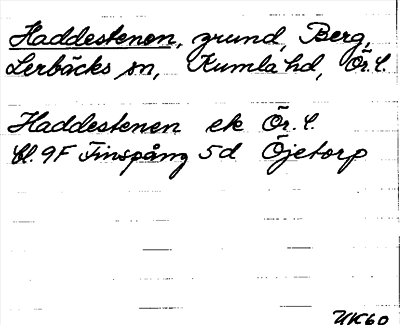 Haddestenen, grund, Berg,
Lerbäcks sn, Kumla hd, Ör. l.
Haddestenen ek Ör. l.
bl. 9F Finspång 5d Öjetorp
UK60